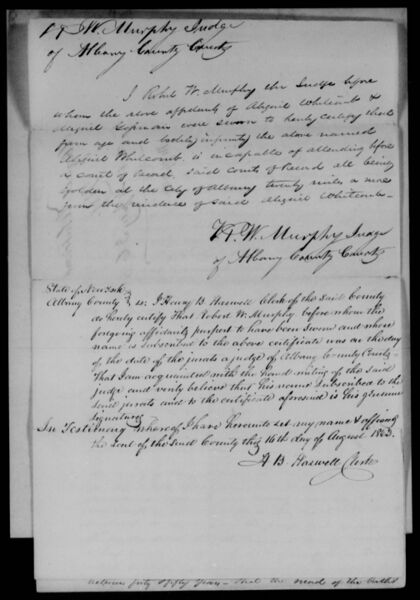 R W. Murphy Judge
of Albany County Courts
I Robt W. Murphy the Judge before
whom the above affidavits of Abigail Whitcomb &
Abigail were sworn to hereby certify that
from age and bodily infirmity the above named
Abigail Whitcomb is incapable of attending before
a Court of Record, said Courts of Record all being
holden at the City of Albany twenty miles & more
from the residence of said Abigail Whitcomb
R. W. Murphy Judge
of Albany County Courts
State of New York
Albany County } ss. I Henry B. Haswell Clerk of the said County
do hereby certify That Robert W. Murphy before whom the
foregoing affidavits purport to have been sworn and whose
name is subscribed to the above certificate was on the day
of the date of the jurats a judge of Albany County Courts
That I am acquainted with the hand writing of the said
judge and verily believe that his name subscribed to the
said jurats and to the certificate aforesaid is his genuine
signature
In Testimony whereof I have hereunto set my name & official
the seal of the said County this 16th day of August 1853.
H B Haswell Clerk
fifty years - that the